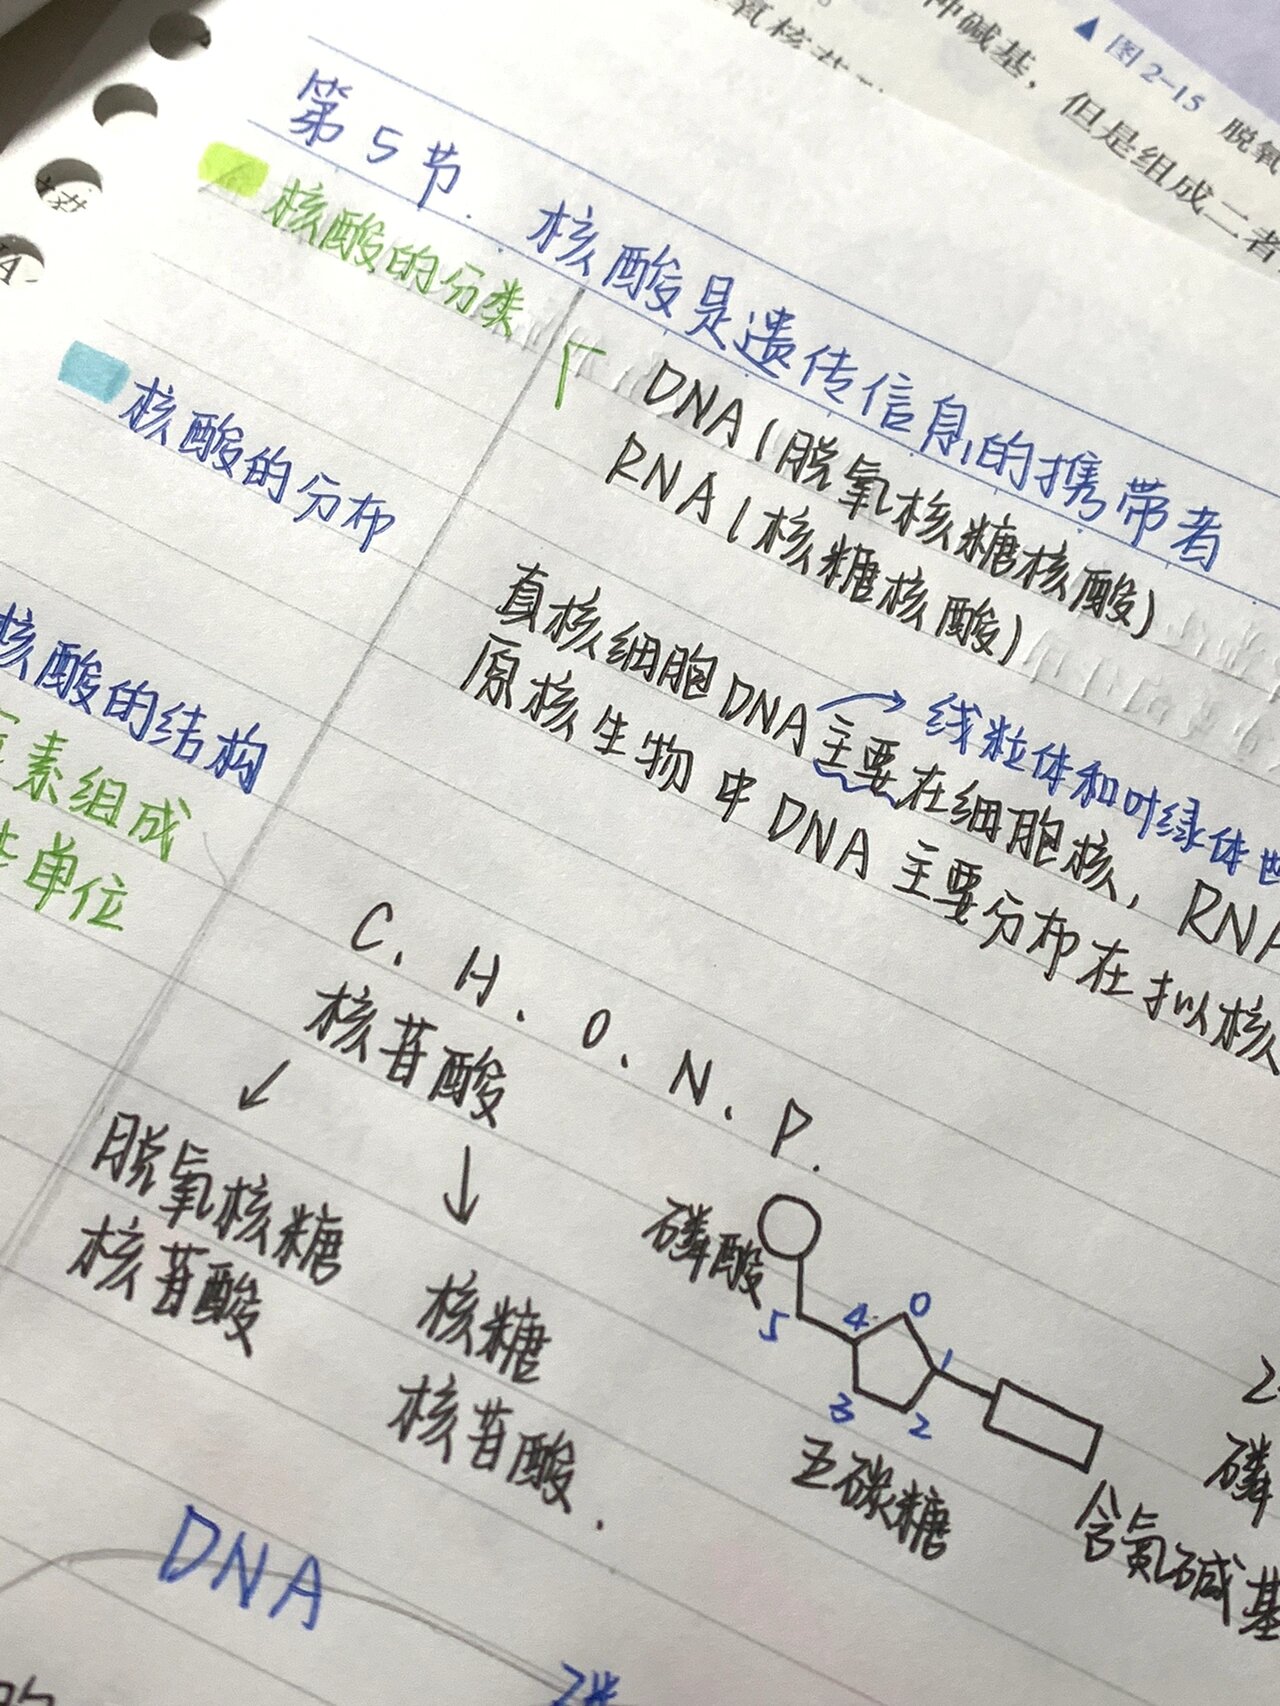 ▲图2-15 脱氧
种碱基，但是组成二者
第5节. 核酸是遗传信息的携带者
核酸的分类
DNA(脱氧核糖核酸)
RNA(核糖核酸)
核酸的分布
线粒体和叶绿体
真核细胞DNA主要在细胞核，RNA
原核生物中DNA主要分布在拟核
核酸的结构
素组成
单位
C. H. O. N. P.
核苷酸
脱氧核糖
核苷酸
核糖
核苷酸.
磷酸
5 4 O 1
3 2
五碳糖
含氮碱基
磷
DNA